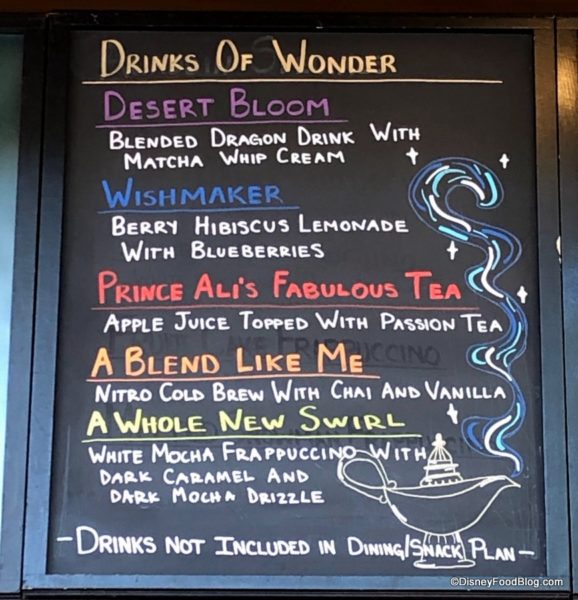 DRINKS OF WONDER
DESERT BLOOM
BLENDED DRAGON DRINK WITH
MATCHA WHIP CREAM
WISHMAKER
BERRY HIBISCUS LEMONADE
WITH BLUEBERRIES
PRINCE ALI'S FABULOUS TEA
APPLE JUICE TOPPED WITH PASSION TEA
A BLEND LIKE ME
NITRO COLD BREW WITH CHAI AND VANILLA
A WHOLE NEW SWIRL
WHITE MOCHA FRAPPUCCINO WITH
DARK CARAMEL AND
DARK MOCHA DRIZZLE
-DRINKS NOT INCLUDED IN DINING/SNACK PLAN-
©DisneyFoodBlog.com